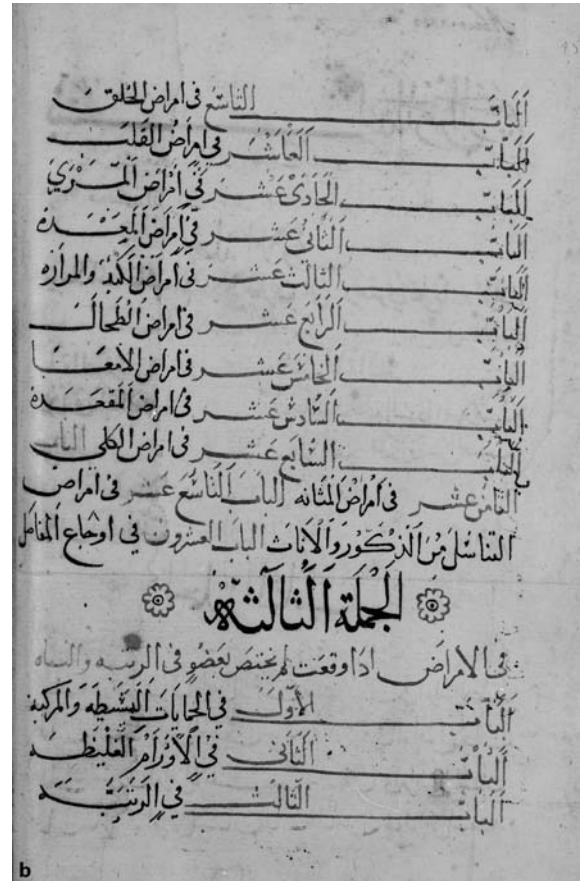 الباب التاسع فى امراض الحلق
الباب العاشر في امراض القلب
الباب الحادى عشر في امراض المرئ
الباب الثانى عشر في امراض المعدة
الباب الثالث عشر في امراض الكبد والمراره
الباب الرابع عشر فى امراض الطحال
الباب الخامس عشر فى امراض الامعا
الباب السادس عشر فى امراض المقعدة
الباب السابع عشر فى امراض الكلى الباب
الثامن عشر فى امراض المثانه الباب التاسع عشر فى امراض
التناسل من الذكور والاناث الباب العشرون في اوجاع المفاصل
الجملة الثالثة
فى الامراض اذا وقعت لم يختص بعضو فى
الباب الاول في الحميات البسيطه والمركبه
الباب الثانى في الاورام الغليظه
الباب الثالث في
b